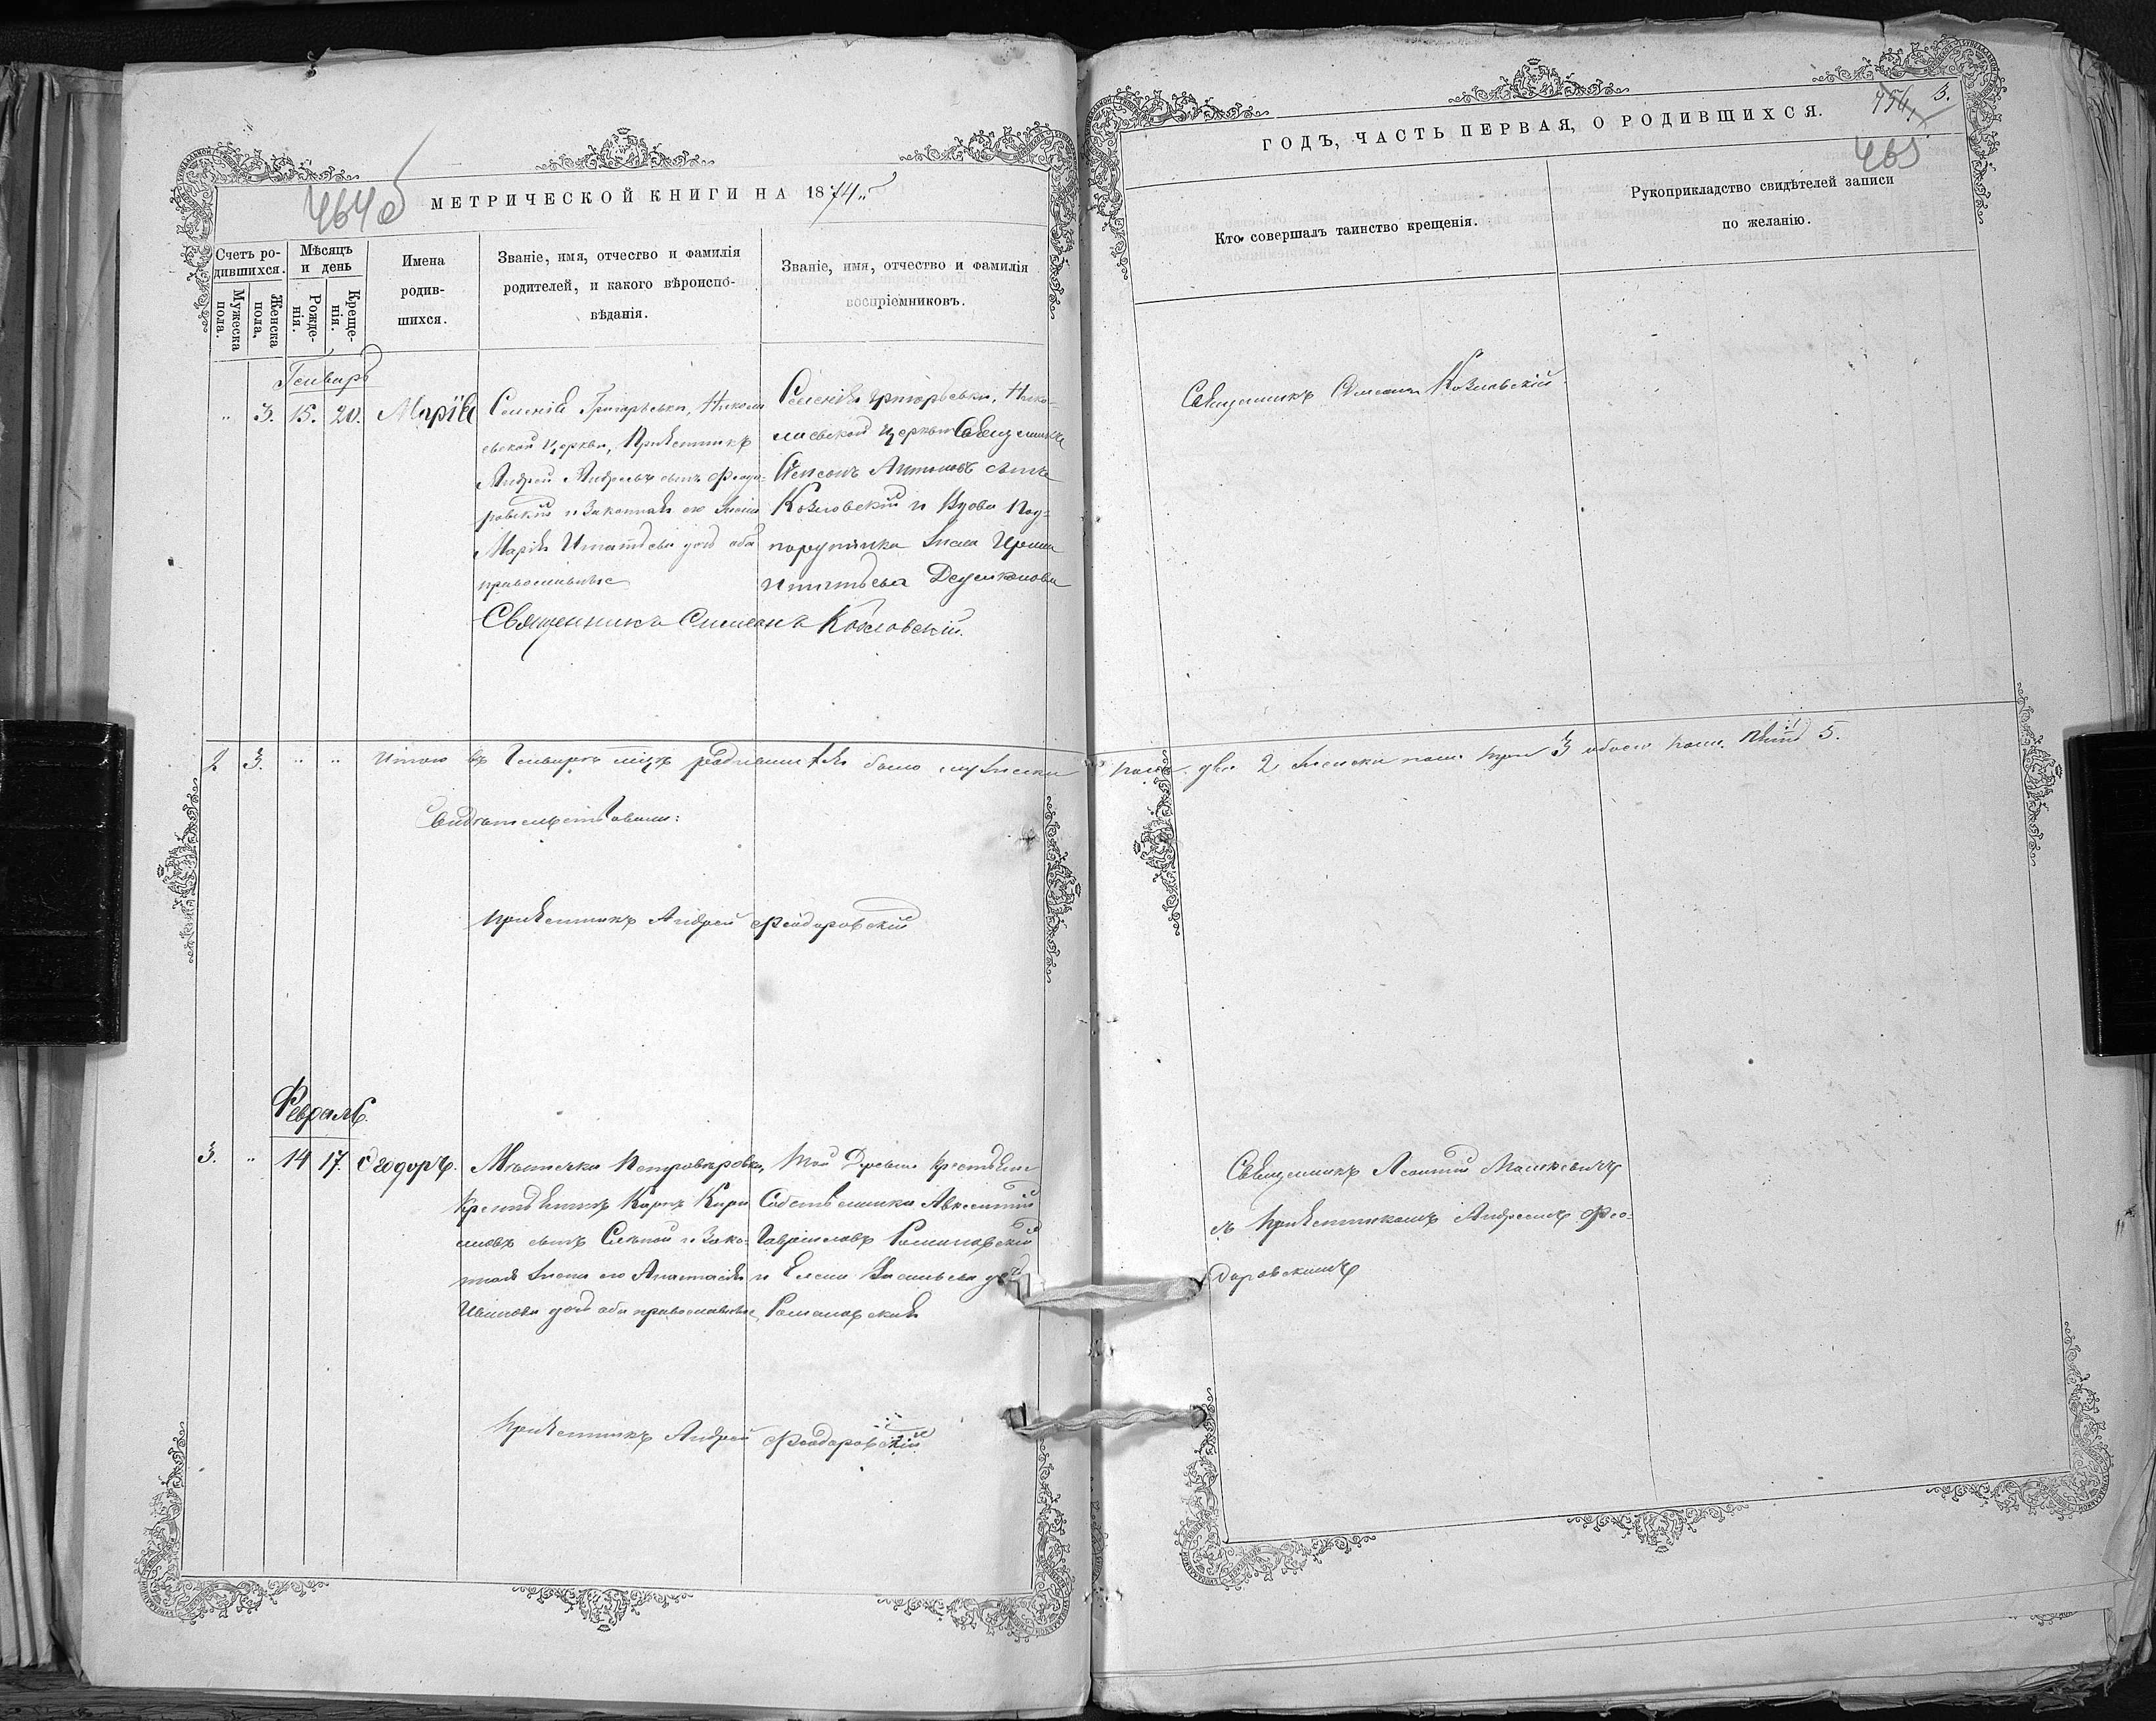 464 об
МЕТРИЧЕСКОЙ КНИГИ НА 1874
Счетъ ро-
дившихся.
Мужеска
пола.
Женска
пола.
Мѣсяцъ
и день
Рожде-
нія.
Креще-
нія.
Имена
родив-
шихся.
Званіе, имя, отчество и фамилія
родителей, и какого вѣроиспо-
вѣданія.
Званіе, имя, отчество и фамилія
воспріемниковъ.
Генварь
" 3. 15. 20. Марія
Селенія Григорьевки, Никола
евской Церкви, Причетникъ
Андрей Андреевъ сынъ Феодо-
ровскій и Законная его жена
Марія Игнатьева дочь оба
православные
Селенія Григорьевки, Нико-
лаевской Церкви Священникъ
Симеонъ Антоновъ сынъ
Козловскій и Вдова Под-
порутчика жена
Игнатьева
Священникъ Симеонъ Козловскій.
2 3. " " Итого въ Генварѣ мцѣ родившихся было мужеска
Свидѣтельствовали:
Причетникъ Андрей Феодоровскій
Февраль.
3. " 14 17. Феодоръ.
Мѣстечка Петровѣровки,
Крестьянинъ Карпъ Кири
ловъ сынъ и Зако-
нная жена его Анастасія
Иванова дочь оба православные
Той Деревни Крестьяне
Собственники Авксентій
Гавриловъ Романовскій
и Елена Васильева дочь
Романовская
Причетникъ Андрей Феодоровскій
3.
465
ГОДЪ, ЧАСТЬ ПЕРВАЯ, О РОДИВШИХСЯ.
Кто совершалъ таинство крещенія.
Рукоприкладство свидѣтелей записи
по желанію.
Священникъ Симеонъ Козловскій
пола два 2 женска пола три 3 обоего пола пять 5.
Священникъ Леонтій Мацкевичъ
съ Причетникомъ Андреемъ Фео-
доровскимъ